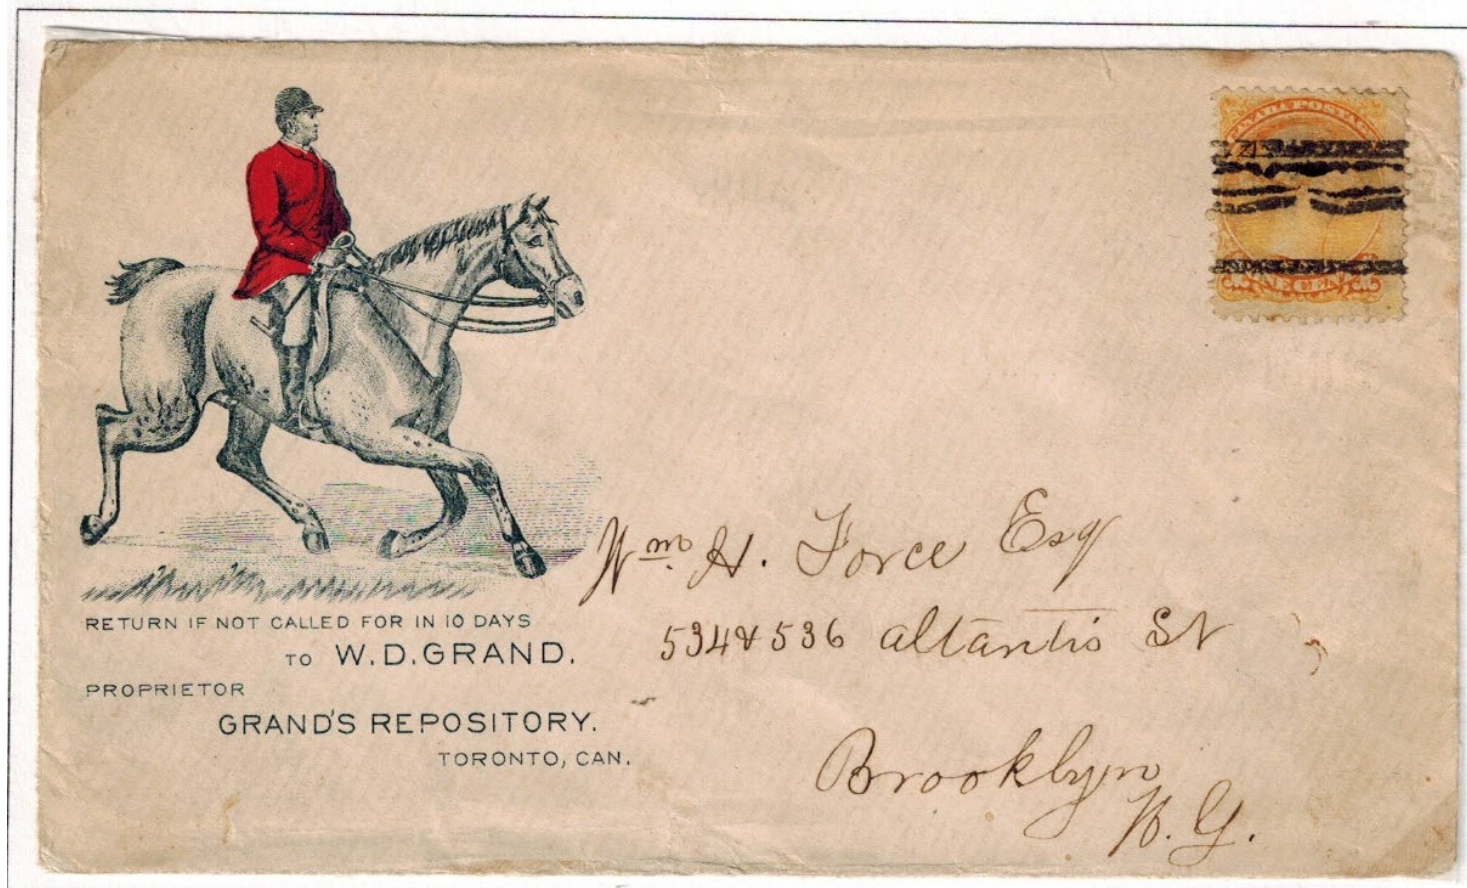 CANADA POSTAGE
ONE CENT
RETURN IF NOT CALLED FOR IN 10 DAYS
TO W.D.GRAND.
PROPRIETOR
GRAND'S REPOSITORY.
TORONTO, CAN.
Wm. H. Force Esq
534 & 536 Altantis St
Brooklyn
N. Y.